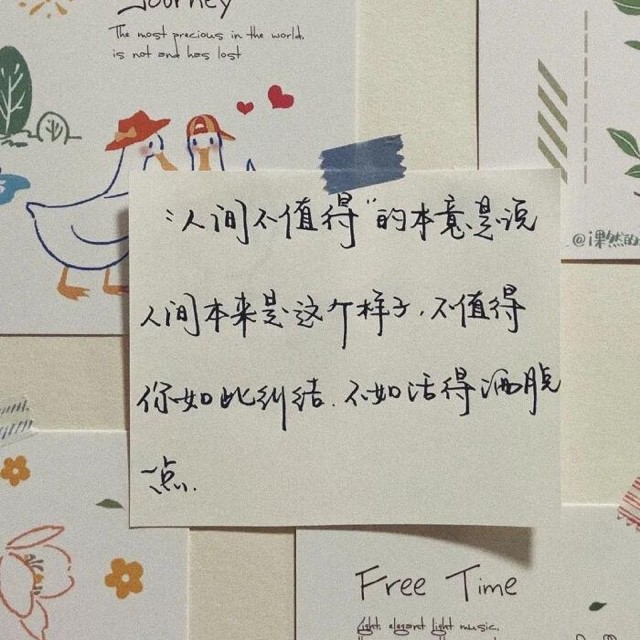 Journey
The most precious in the world.
is not and has lost
@i果然的
“人间不值得”的本意是说
人间本来是这个样子,不值得
你如此纠结.不如活得洒脱
一点.
Free Time
Light, elegant light music.